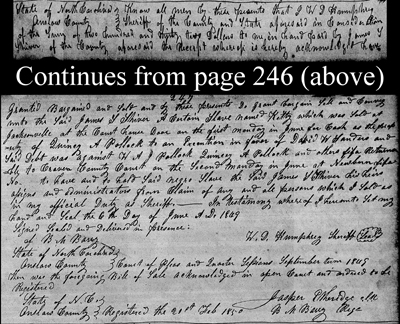 State of North Carolina } Know all men by these presents that I W D Humphrey
Onslow County } Sheriff of the County and State aforesaid in Consideration
of the Sum of two hundred and thirty two Dollars to me in hand paid by James
Shiver of the County aforesaid the Receipt whereof is hereby acknowledged have
Continues from page 246 (above)
Granted Bargained and Sold and by these presents do grant bargain Sell and Convey
unto the Said James Shiver A Certain Slave named Kitty which was Sold at
Jacksonville at the Court House Door on the first monday in June for Cash as the prop
erty of Quincy A Pollock to an Execution in favor of Sanders and
Said Debt was against W A J Pollock Quincy A Pollock and Returna
ble to Craven County Court on the Second monday in June at Newbern
No. to have and to hold Said negro Slave the Said James Shiver his heirs
assigns and administrators from Claim of any and all persons which I Sold as
in my official Duty as Sheriff. In Testimony where of I hereunto Set my
hand and Seal the 6th Day of June A.D. 1849
Signed Sealed and Delivered in presence:
of B M Barry W. D. Humphrey Sheriff (Seal)
State of North Carolina
Onslow County } Court of Pleas and Quarter Sessions September term 1849
then was the foregoing Bill of Sale acknowledged in open Court and ordered to be
Registered Jasper Etheridge clk
State of N. C
Onslow County } Registered the 20th Feb 1850 B M Barry Regr